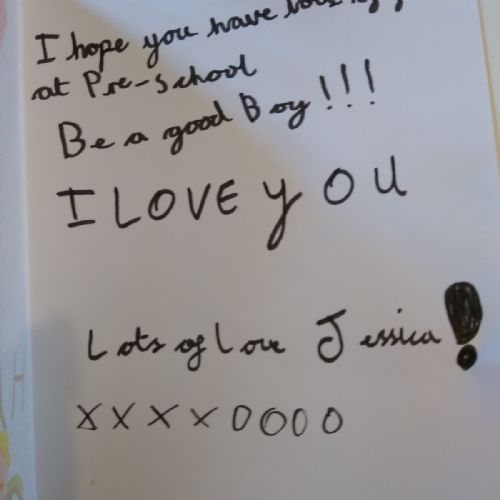 I hope you have
at Pre-School
Be a good Boy!!!
I LOVE yOU
Lots of love Jessica!
XXXXOOOO